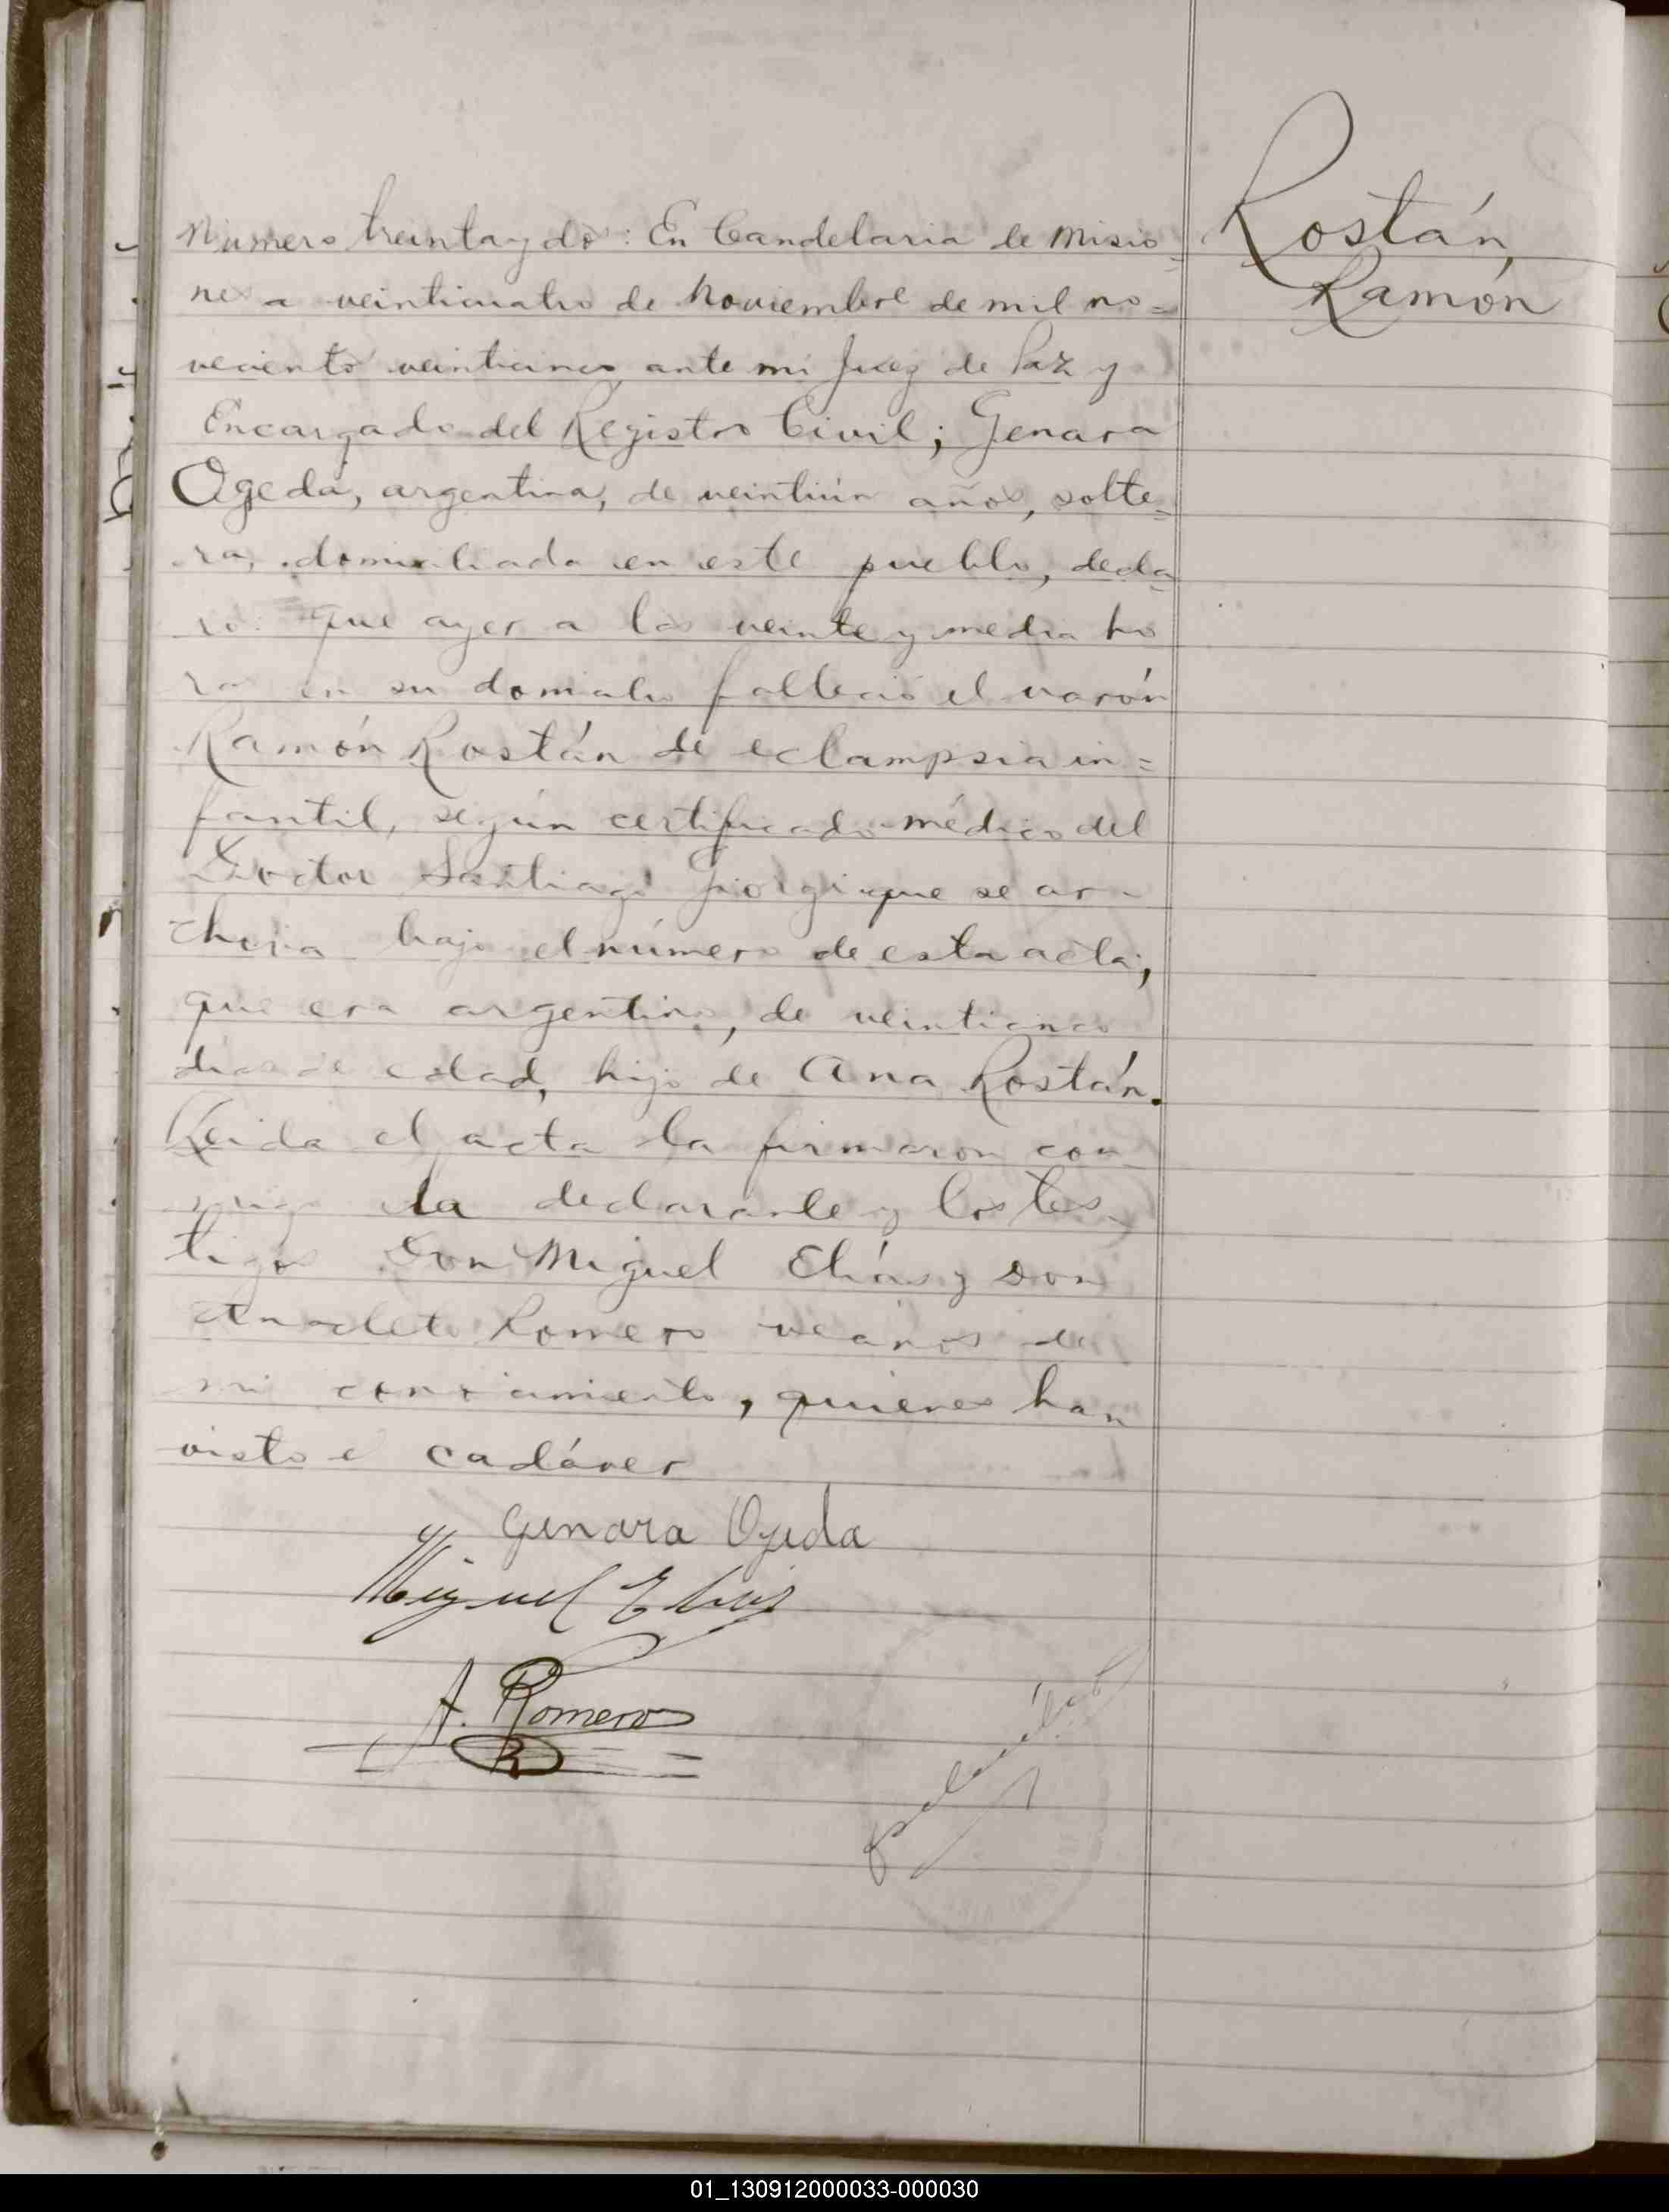 Rostán,
Ramón
Número treinta y dos: En Candelaria de Misio
nes a veinticuatro de Noviembre de mil no=
vecientos veinticinco ante mi Juez de Paz y
Encargado del Registro Civil; Genara
Ogeda, argentina, de veintiún años, solte=
ra, domiciliada en este pueblo, decla
ró: que ayer a las veinte y media ho
ras en su domicilio falleció el varón
Ramón Rostán de eclampsia in=
fantil, según certificado médico del
Doctor Santiago Giorgi que se ar-
chiva bajo el número de esta acta;
que era argentino, de veinticinco
dias de edad, hijo de Ana Rostán.
Leida el acta la firmaron con
migo la declarante y los tes
tigos Don Miguel Elías y Don
Anacleto Romero vecinos de
mi conocimiento, quienes han
visto el cadáver
Genara Ojeda
Miguel Elias
A. Romero
01_130912000033-000030